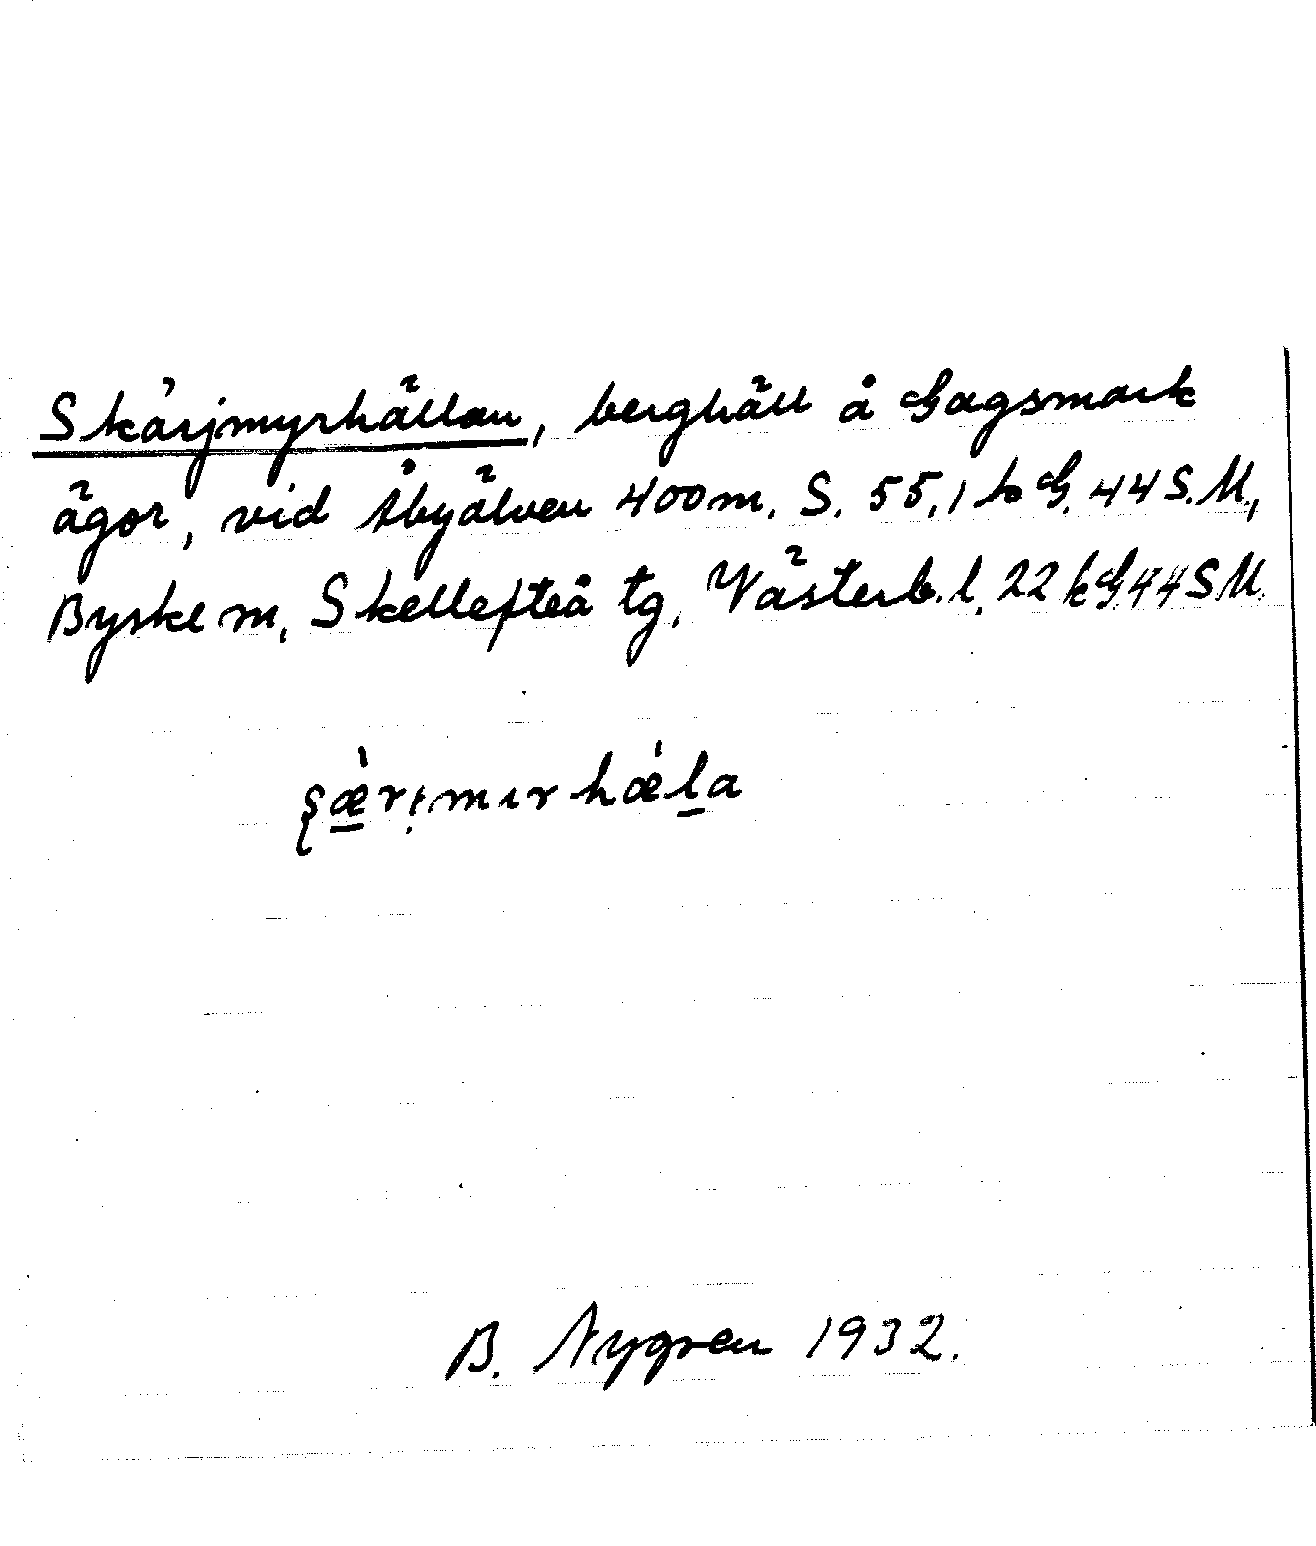 Skärjmyrhällan, berghäll å Gagsmark
ägor, vid Åbyälven 400 m. S. 55,1 k G. 44 S.M.,
Byske sn, Skellefteå tg, Västerb. l. 22 k G 44 S M.
ʂæ̀rjmɪrhǽla
B. Nygren 1932.